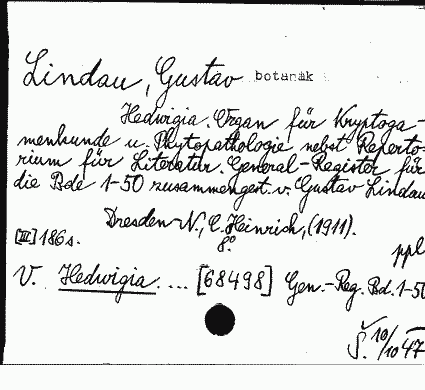 Lindau, Gustav botanik
Hedwigia. Organ für Kryptoga-
menkunde u. Phytopathologie nebst Reperto-
rium für Literatur. General-Register für
die Bde 1-50 zusammengest. v. Gustav Lindau
Dresden-N., C. Heinrich, (1911).
[III] 186 s. 8°.
ppl
V. Hedwigia. ... [68498] Gen.-Reg. Bd. 1-50
Š. 10/10 47